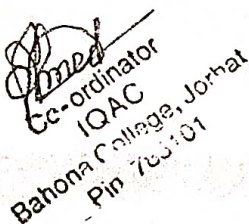 Co-ordinator
IQAC
Bahona College, Jorhat
Pin